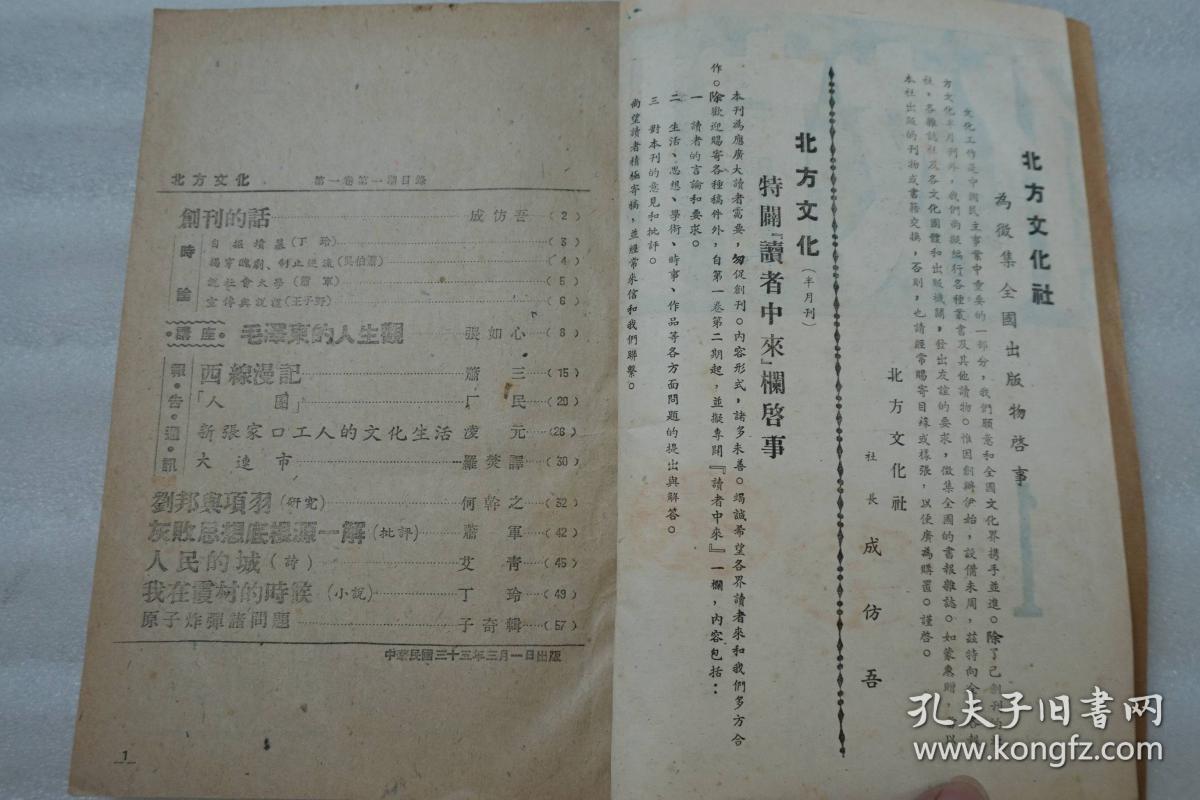 北方文化社
為徵集全國出版物啓事
文化工作是中國民主事業中重要的一部分，我們願意和全國文化界携手並進。除了已創刊的北
方文化半月刊外，我們尚擬編行各種叢書及其他讀物。惟因創辦伊始，設備未周，茲特向全
社，各雜誌社及各文化團體和出版機關，發出友誼的要求，徵集全國的書報雜誌。如蒙惠贈，
本社出版的刊物或書籍交換，否則，也請經常賜寄目錄或樣張，以便廣為購置。謹啓。
北方文化社
社長 成仿吾
北方文化（半月刊）
特闢『讀者中來』欄啓事
本刊為應廣大讀者需要，匆促創刊。內容形式，諸多未善。竭誠希望各界讀者來和我們多方合
作。除歡迎賜寄各種稿件外，自第一卷第二期起，並擬專闢『讀者中來』一欄，內容包括：
一 讀者的言論和要求。
二 生活、思想、學術、時事、作品等各方面問題的提出與解答。
三 對本刊的意見和批評。
尚望讀者積極寄稿，並經常來信和我們聯繫。
北方文化 第一卷第一期目錄
創刊的話 成仿吾（2）
時論
自掘墳墓（丁玲）（3）
揭穿醜劇、制止逆流（吳伯簫）（4）
說社會大學（蕭軍）（5）
宣傳與說謊（王子野）（6）
講座 毛澤東的人生觀 張如心（8）
報告・通訊
西線漫記 蕭三（15）
「人圈」 厂民（20）
新張家口工人的文化生活 凌元（26）
大連市 羅焚譯（30）
劉邦與項羽（研究） 何幹之（32）
灰敗思想底根源一解（批評） 蕭軍（42）
人民的城（詩） 艾青（45）
我在霞村的時候（小說） 丁玲（49）
原子炸彈諸問題 子奇輯（57）
中華民國三十五年三月一日出版
1
孔夫子旧書网
www.kongfz.com